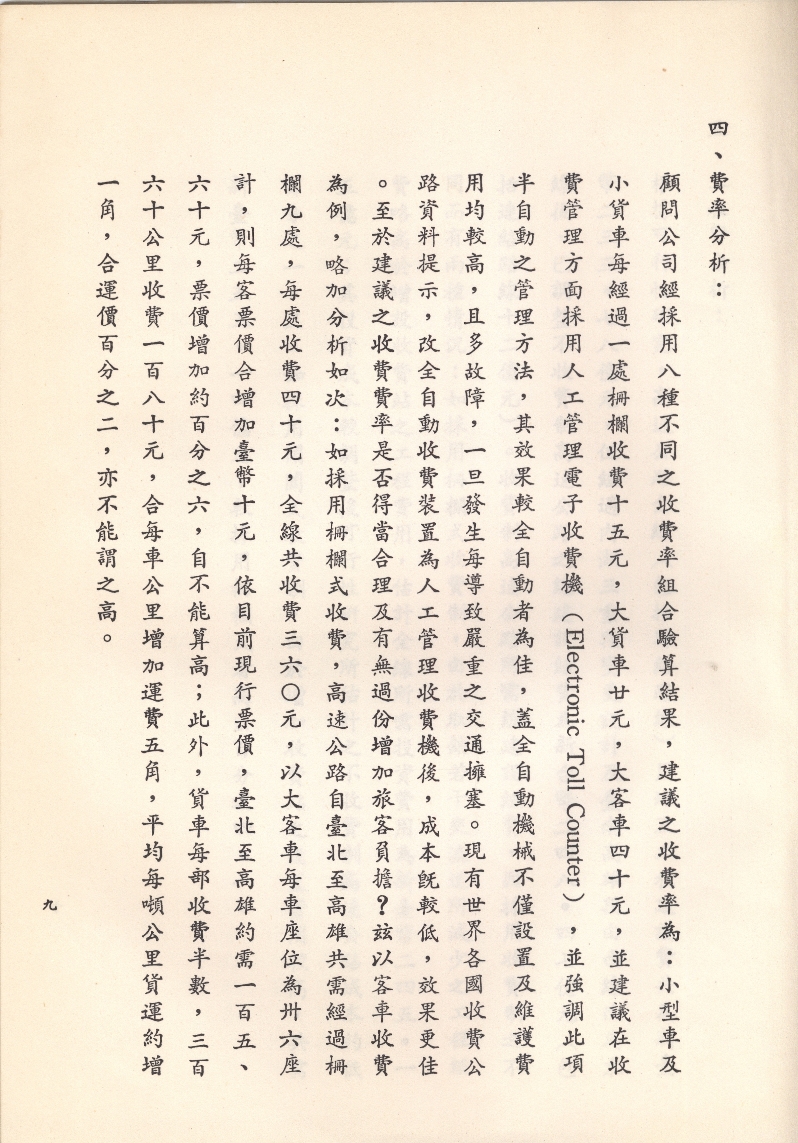 四、費率分析：
顧問公司經採用八種不同之收費率組合驗算結果，建議之收費率為：小型車及
小貨車每經過一處柵欄收費十五元，大貨車廿元，大客車四十元，並建議在收
費管理方面採用人工管理電子收費機（Electronic Toll Counter），並強調此項
半自動之管理方法，其效果較全自動者為佳，蓋全自動機械不僅設置及維護費
用均較高，且多故障，一旦發生每導致嚴重之交通擁塞。現有世界各國收費公
路資料提示，改全自動收費裝置為人工管理收費機後，成本既較低，效果更佳
。至於建議之收費費率是否得當合理及有無過份增加旅客負擔？玆以客車收費
為例，略加分析如次：如採用柵欄式收費，高速公路自臺北至高雄共需經過柵
欄九處，每處收費四十元，全線共收費三六〇元，以大客車每車座位為卅六座
計，則每客票價合增加臺幣十元，依目前現行票價，臺北至高雄約需一百五、
六十元，票價增加約百分之六，自不能算高；此外，貨車每部收費半數，三百
六十公里收費一百八十元，合每車公里增加運費五角，平均每噸公里貨運約增
一角，合運價百分之二，亦不能謂之高。
九